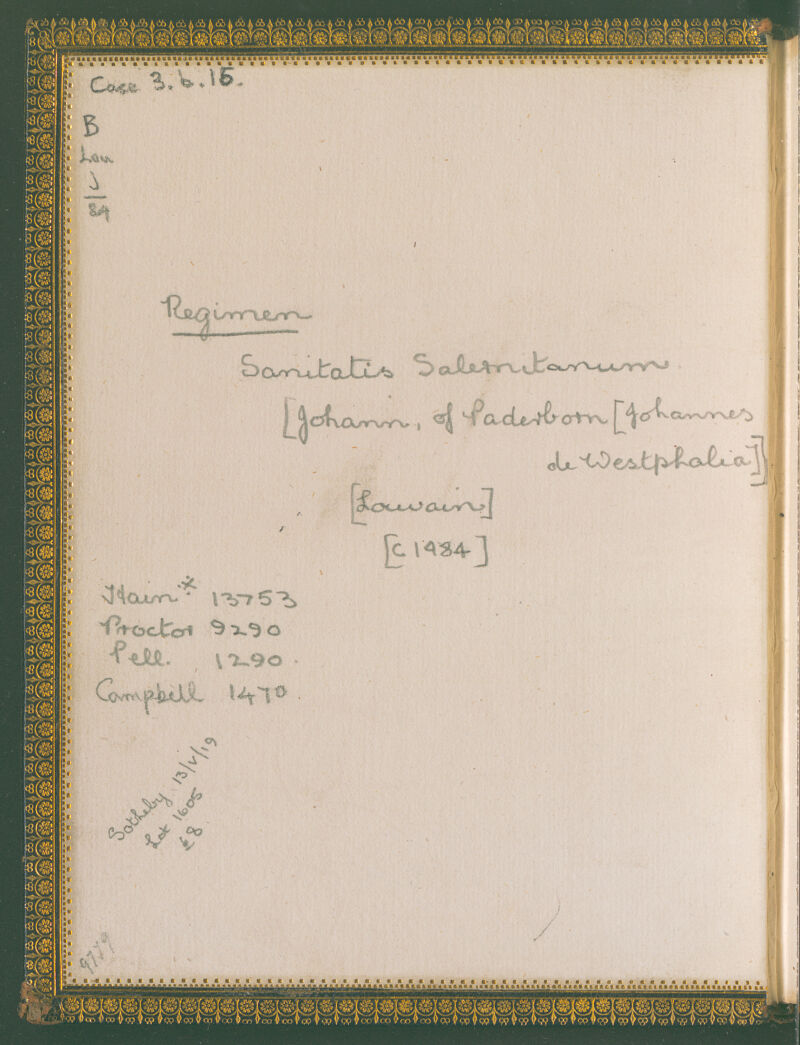 Case 3.b.15.
B
Lou
J
84
Regimen
Sanitatis Salernitanum
[Johann, of Paderborn [Johannes
de Westphalia]]
[Louvain]
[c 1484]
Hain* 13753
Proctor 9290
Pell. 1290.
Campbell 1470.
Sotheby 13/V/19
Lot 1605
£8